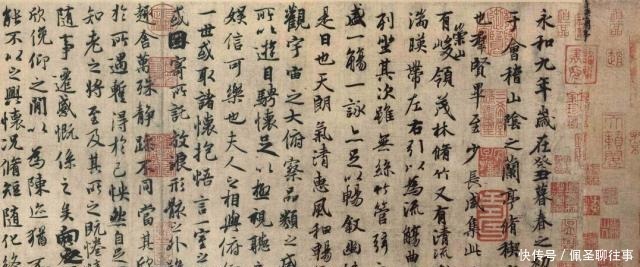 永和九年歲在癸丑暮春之
于會稽山陰之蘭亭脩禊
也群賢畢至少長咸集此
有崇山峻領茂林脩竹又有清流
湍暎帶左右引以為流觴曲
列坐其次雖無絲竹管弦
盛一觴一詠亦足以暢叙幽
是日也天朗氣清惠風和暢
觀宇宙之大俯察品類之盛
所以遊目騁懷足以極視聽
娛信可樂也夫人之相與俯
一世或取諸懷抱悟言一室之
或因寄所託放浪形骸之外雖
趣舍萬殊靜躁不同當其欣
於所遇暫得於己怏然自足
知老之將至及其所之既惓
隨事遷感慨係之矣向之
欣俛仰之間以為陳迹猶不
能不以之興懷況脩短隨化終
快传号/佩圣聊往事